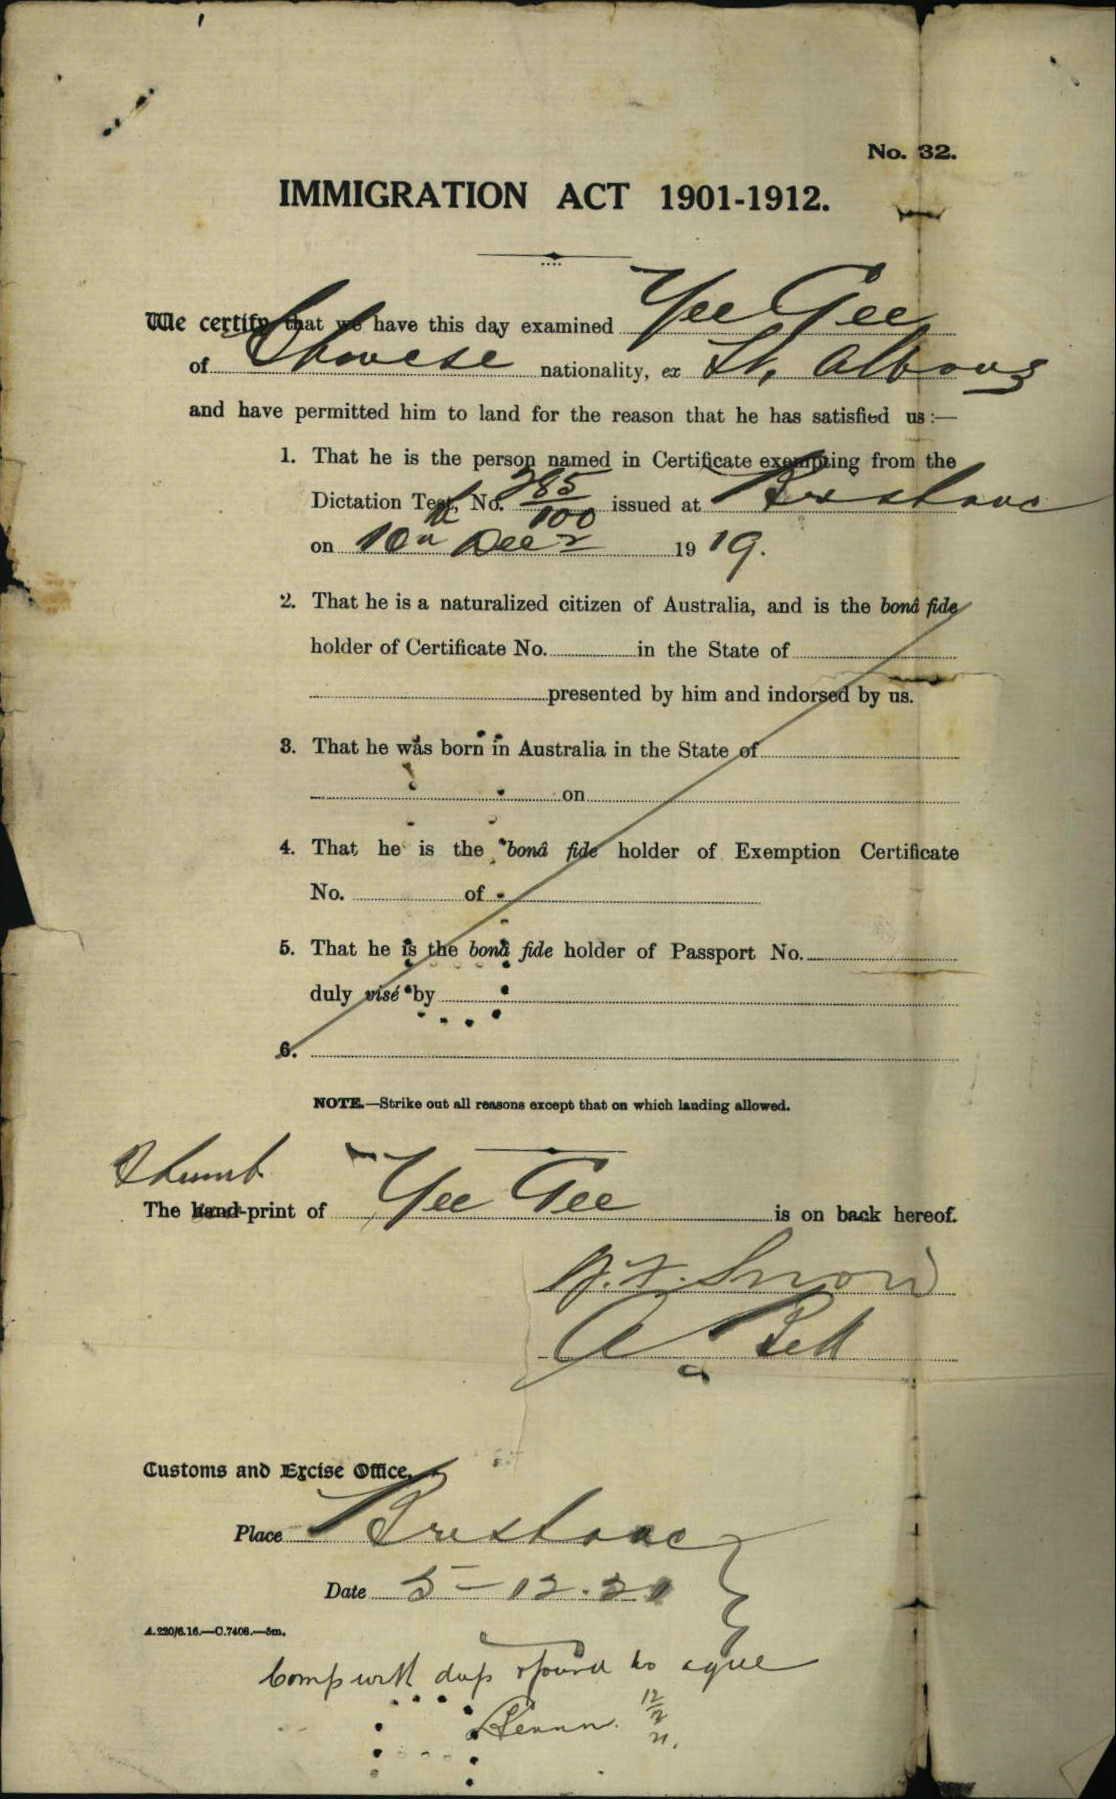 No. 32.
IMMIGRATION ACT 1901-1912.
We certify that we have this day examined Yee Gee
of Chinese nationality, ex St. Albans
and have permitted him to land for the reason that he has satisfied us:—
1. That he is the person named in Certificate exempting from the
Dictation Test, No. 285/100 issued at Brisbane
on 10th Decr 1919.
2. That he is a naturalized citizen of Australia, and is the bonâ fide
holder of Certificate No. in the State of
presented by him and indorsed by us.
3. That he was born in Australia in the State of
on
4. That he is the bonâ fide holder of Exemption Certificate
No. of
5. That he is the bonâ fide holder of Passport No.
duly visé by
6.
NOTE.—Strike out all reasons except that on which landing allowed.
Thumb
The hand-print of Yee Gee is on back hereof.
Snow
A Bell
Customs and Excise Office,
Place Brisbane
Date 5-12.21
A.220/6.16.—C.7406.—5m.
Comp with dup & found to agree
12